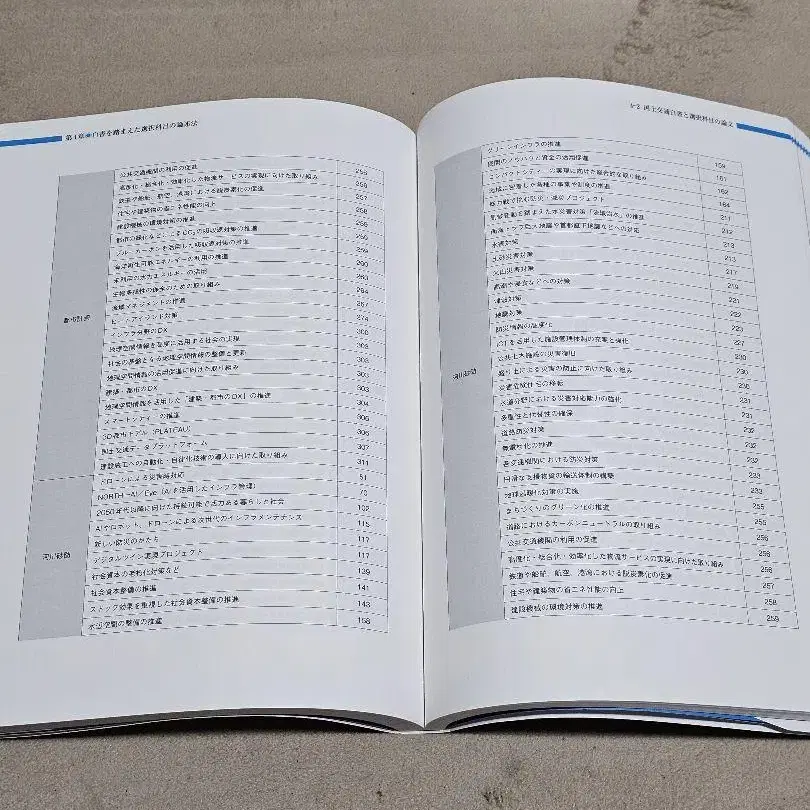 第4章 白書を踏まえた選択科目の論述法
都市計画
公共交通機関の利用の促進 256
高度化・総合化・効率化した物流サービスの実現に向けた取り組み 256
鉄道や船舶、航空、港湾における脱炭素化の促進 257
住宅や建築物の省エネ性能の向上 258
建設機械の環境対策の推進 259
都市の緑化などによるCO₂の吸収源対策の推進
ブルーカーボンを活用した吸収源対策の推進
海洋再生可能エネルギーの利用の推進
未利用の水力エネルギーの活用
生物多様性の保全のための取り組み
流域マネジメントの推進
ヒートアイランド対策
インフラ分野のDX 300
地理空間情報を高度に活用する社会の実現
社会の基盤となる地理空間情報の整備と更新
地理空間情報の活用促進に向けた取り組み 303
建築・都市のDX 303
地理空間情報を活用した「建築・都市のDX」の推進 303
スマートシティーの推進 304
3D都市モデル(PLATEAU) 305
国土交通データプラットフォーム 306
建設施工への自動化・自律化技術の導入に向けた取り組み 307
311
河川砂防
ドローンによる災害時対応 51
NORTH-AI/Eye(AIを活用したインフラ管理) 70
2050年代以降に向けた持続可能で活力ある暮らしと社会 102
AIやロボット、ドローンによる次世代のインフラメンテナンス 115
新しい防災のかたち 117
デジタルツイン実現プロジェクト 117
社会資本の老朽化対策など 139
社会資本整備の推進 141
ストック効果を重視した社会資本整備の推進 143
水辺空間の整備の推進 158
4-2 国土交通白書と選択科目の論文
河川砂防
グリーンインフラの推進 159
民間のノウハウと資金の活用促進 161
コンパクトシティーの実現に向けた総合的な取り組み 162
地域に密着した各種の事業や制度の推進 164
総力戦で挑む防災・減災プロジェクト 211
気候変動を踏まえた水災害対策「流域治水」の推進 212
南海トラフ巨大地震や首都直下地震などへの対応 213
水害対策 213
土砂災害対策 217
火山災害対策 219
高潮や侵食などへの対策 221
津波対策 222
地震対策 223
防災情報の高度化 227
ICTを活用した施設管理体制の充実と強化 230
公共土木施設の災害復旧 230
盛り土による災害の防止に向けた取り組み 230
災害危険住宅の移転 231
水道分野における災害対応能力の強化 231
多重性と代替性の確保 232
道路防災対策 232
無電柱化の推進 232
各交通機関における防災対策 232
円滑な支援物資の輸送体制の構築 233
地球温暖化対策の実施
まちづくりのグリーン化の推進 255
道路におけるカーボンニュートラルの取り組み 255
公共交通機関の利用の促進 256
高度化・総合化・効率化した物流サービスの実現に向けた取り組み 256
鉄道や船舶、航空、港湾における脱炭素化の促進 257
住宅や建築物の省エネ性能の向上 258
建設機械の環境対策の推進 259